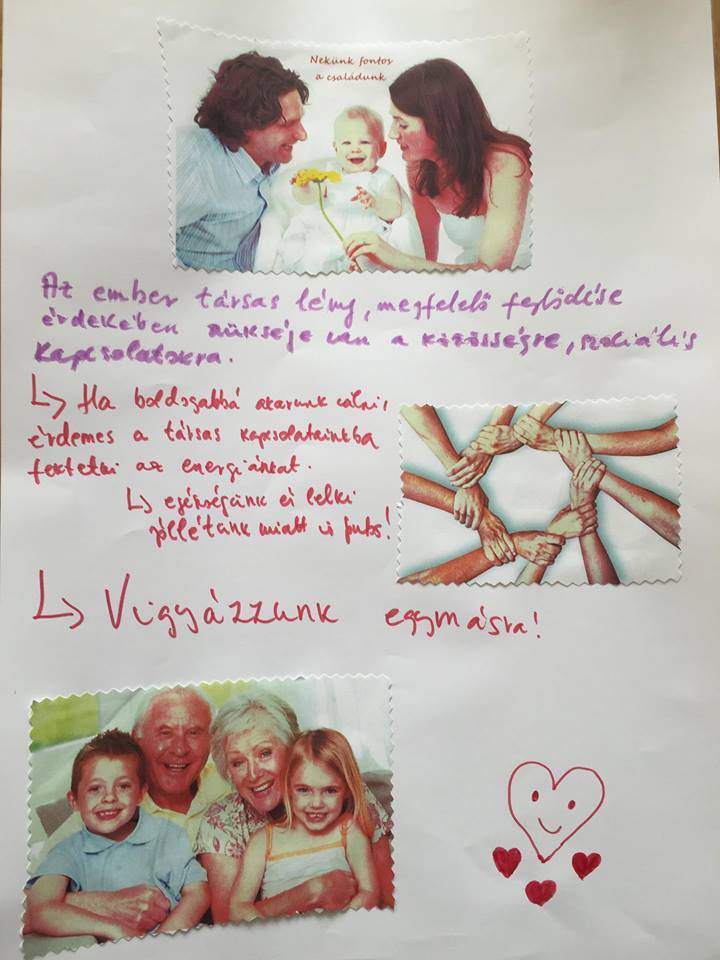 Nekünk fontos
a családunk
Az ember társas lény, megfelelő fejlődése
érdekében szüksége van a közösségre, szociális
kapcsolatokra.
↳ Ha boldogabbá akarunk válni,
érdemes a társas kapcsolatainkba
fektetni az energiánkat.
↳ egészségünk és lelki
jóllétünk miatt is fontos!
↳ Vigyázzunk egymásra!